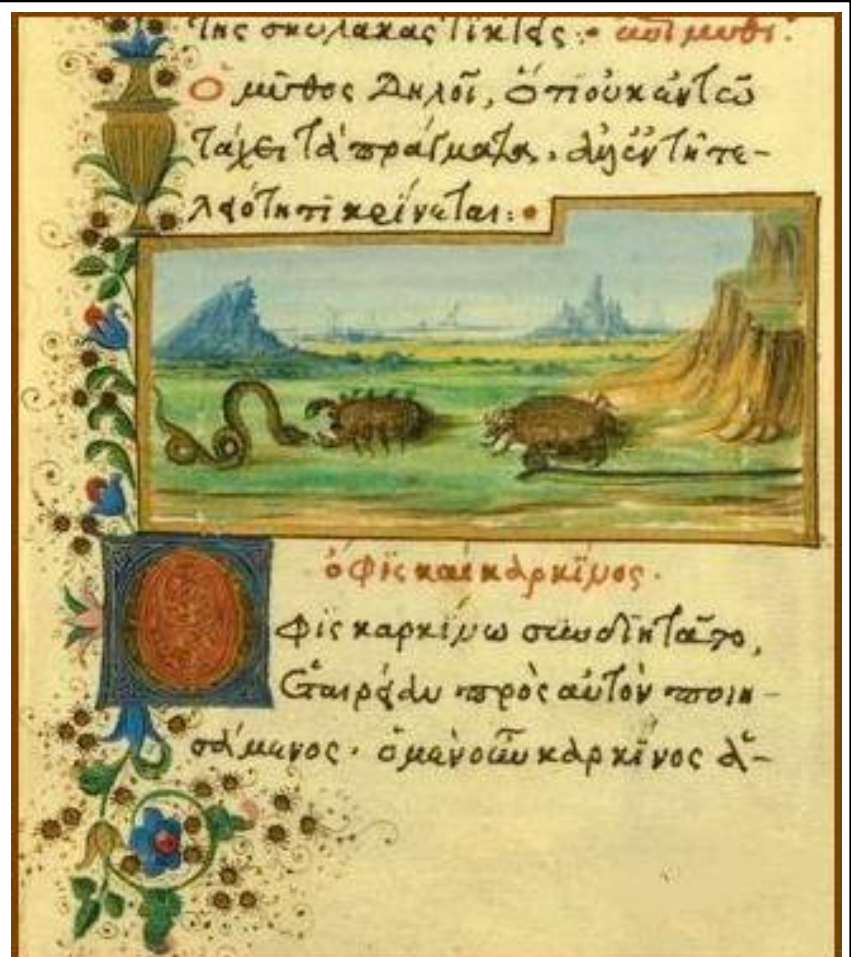 τῆς σκύλακας τίκτεις: ἐπιμύθι.
Ὁ μῦθος δηλοῖ, ὅτι οὐκ ἐν τῷ
τάχει τὰ πράγματα, ἀλλ' ἐν τῇ τε-
λειότητι κρίνεται:
ὄφις καὶ καρκῖνος.
Ὄφις καρκίνω συνδιῃτᾶτο,
ἑταιρείαν πρὸς αὐτὸν ποιη-
σάμενος. ὁ μὲν οὖν καρκῖνος ἁ-